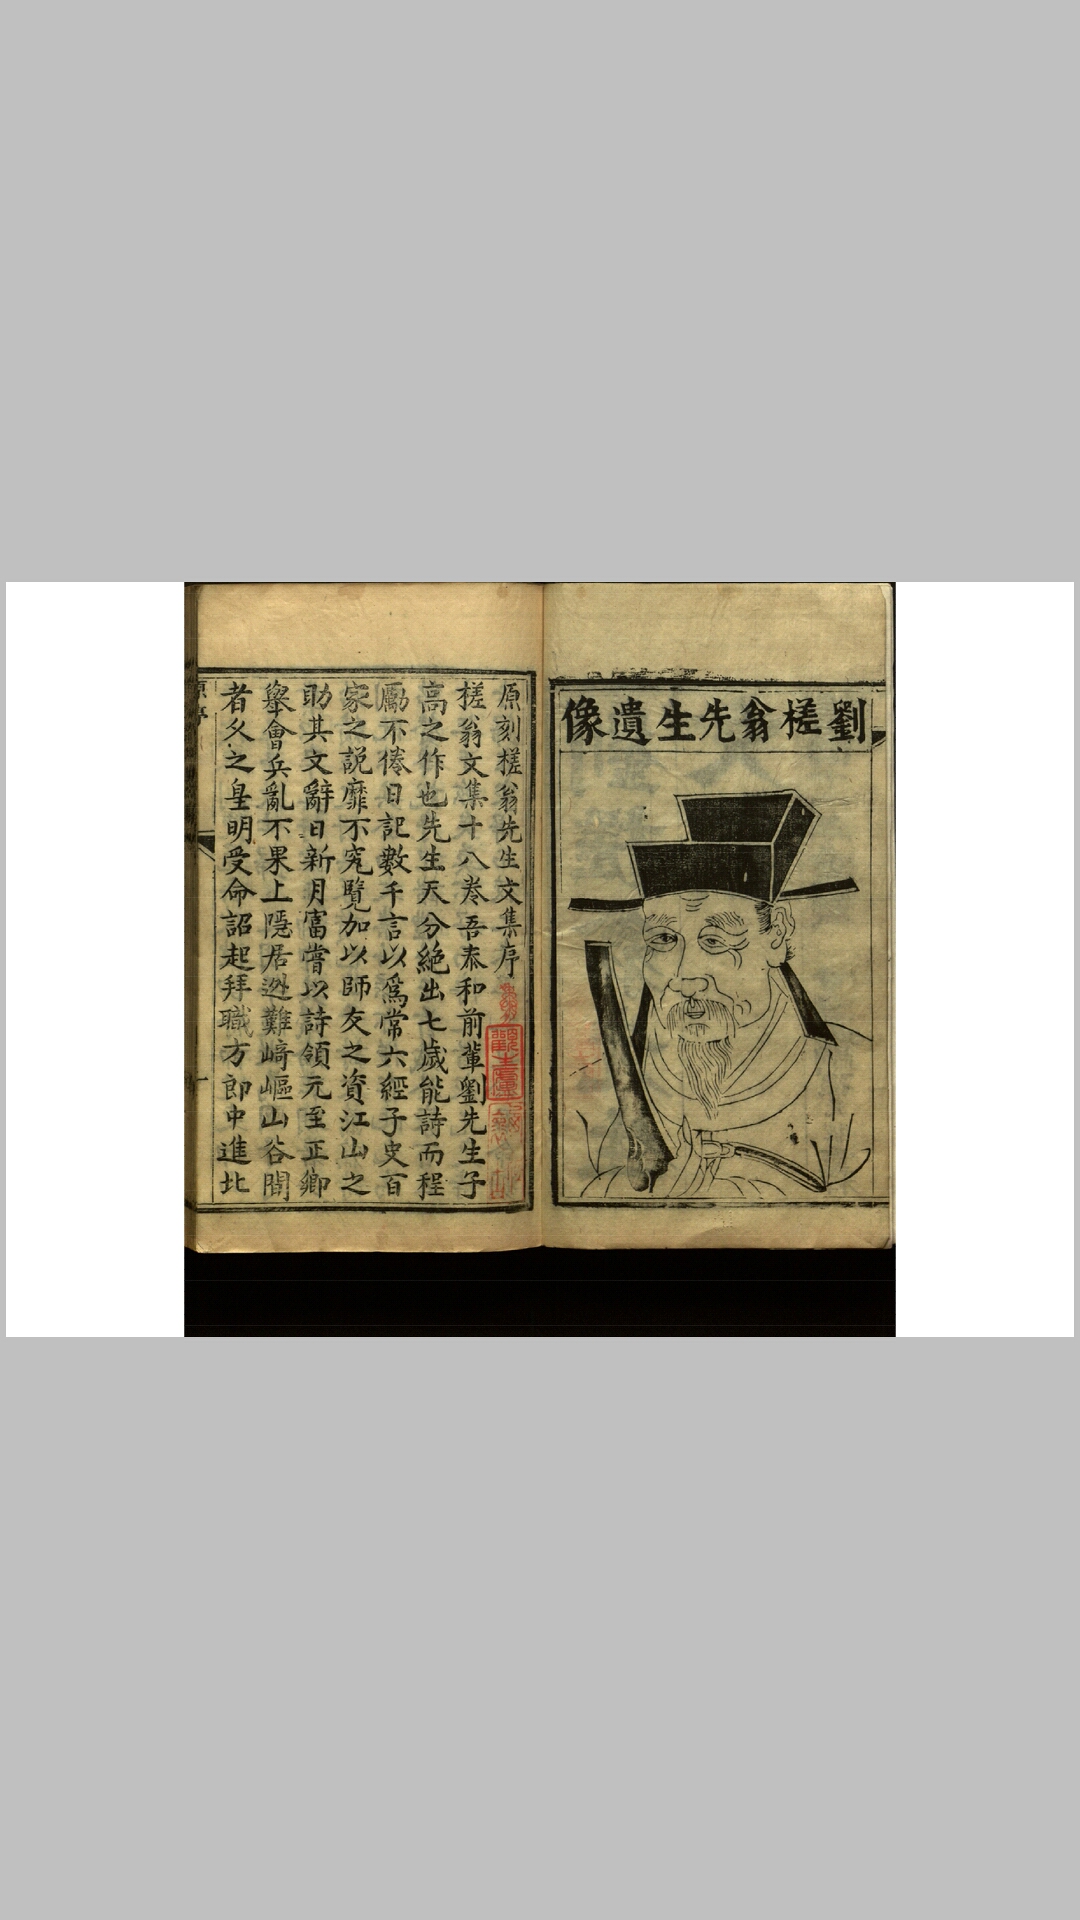 劉槎翁先生遺像
原刻槎翁先生文集序
槎翁文集十八卷吾泰和前輩劉先生子
高之作也先生天分絕出七歲能詩而程
勵不倦日記數千言以爲常六經子史百
家之說靡不究覽加以師友之資江山之
助其文辭日新月富嘗以詩領元至正鄉
舉會兵亂不果上隱居逃難崎嶇山谷間
者久之皇明受命詔起拜職方郎中進北